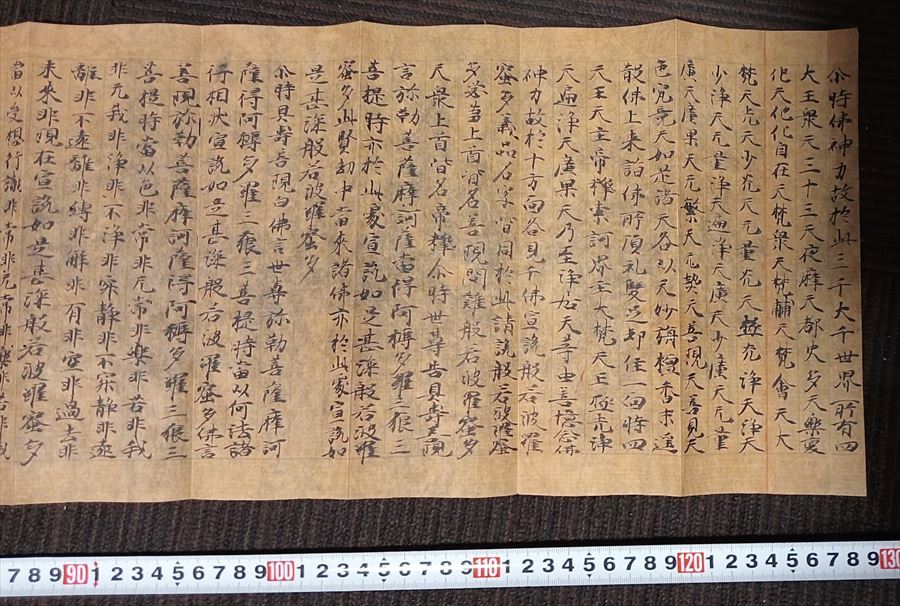 尒時佛神力故於此三千大千世界所有四
大王衆天三十三天夜摩天都史多天樂變
化天他化自在天梵衆天梵輔天梵會天大
梵天光天少光天无量光天極光淨天淨天
少淨天无量淨天遍淨天廣天少廣天无量
廣天廣果天无繁天无熱天善現天善見天
色究竟天如是諸天各以天妙旃檀香末遙
散佛上來詣佛所頂礼雙足却住一面時四
天王天主帝釋索訶界主大梵天王極光淨
天遍淨天廣果天乃至淨居天等由善憶念佛
神力故於十方面各見千佛宣說般若波羅
蜜多義品名字皆同於此請說般若波羅蜜
多苾芻上首皆名善現問難般若波羅蜜多
天衆上首皆名帝釋尒時世尊告具壽善現
言弥勒菩薩摩訶薩當得阿耨多羅三藐三
菩提時亦於此處宣說如是甚深般若波羅
蜜多此賢劫中當來諸佛亦於此處宣說如
是甚深般若波羅蜜多
尒時具壽善現白佛言世尊弥勒菩薩摩訶
薩得阿耨多羅三藐三菩提時當以何法諸
行相狀宣說如是甚深般若波羅蜜多佛言
善現弥勒菩薩摩訶薩得阿耨多羅三藐三
菩提時當以色非常非无常非樂非苦非我
非无我非淨非不淨非寂靜非不寂靜非遠
離非不遠離非縛非解非有非空非過去非
未來非現在宣說如是甚深般若波羅蜜多
當以受想行識非常非无常非樂非苦非我
7 8 9 90 1 2 3 4 5 6 7 8 9 100 1 2 3 4 5 6 7 8 9 110 1 2 3 4 5 6 7 8 9 120 1 2 3 4 5 6 7 8 9 130